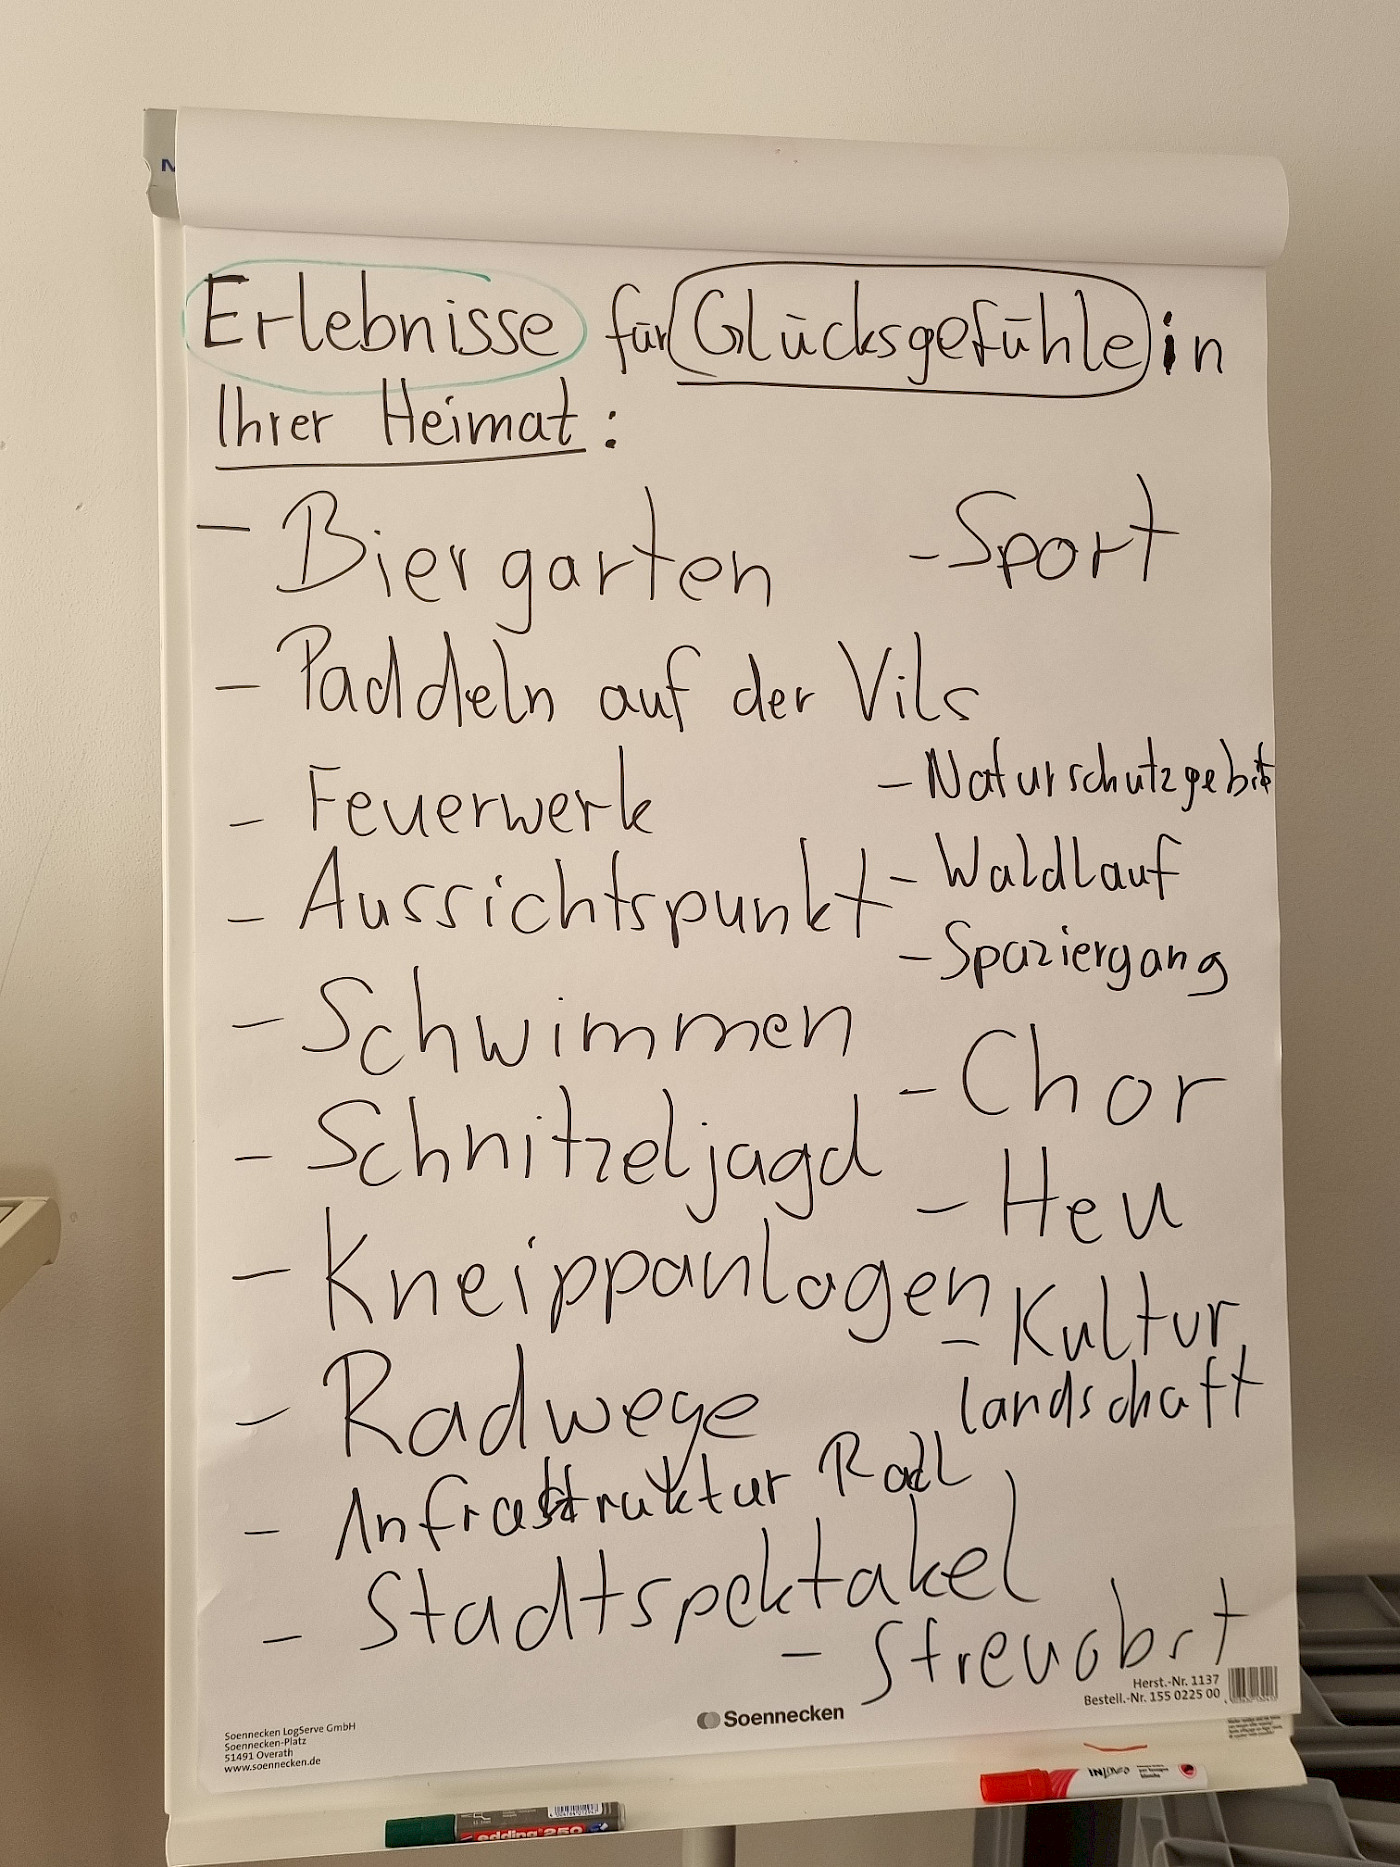 Erlebnisse für Glücksgefühle in
Ihrer Heimat:
- Biergarten
- Paddeln auf der Vils
- Feuerwerk
- Aussichtspunkt
- Schwimmen
- Schnitzeljagd
- Kneippanlagen
- Radwege
- Infrastruktur Radl
- Stadtspektakel
- Sport
- Naturschutzgebiet
- Waldlauf
- Spaziergang
- Chor
- Heu
- Kultur
landschaft
- Streuobst
Herst.-Nr. 1137
Bestell.-Nr. 155 0225 00
Soennecken
Soennecken LogServe GmbH
Soennecken-Platz
51491 Overath
www.soennecken.de
edding 250